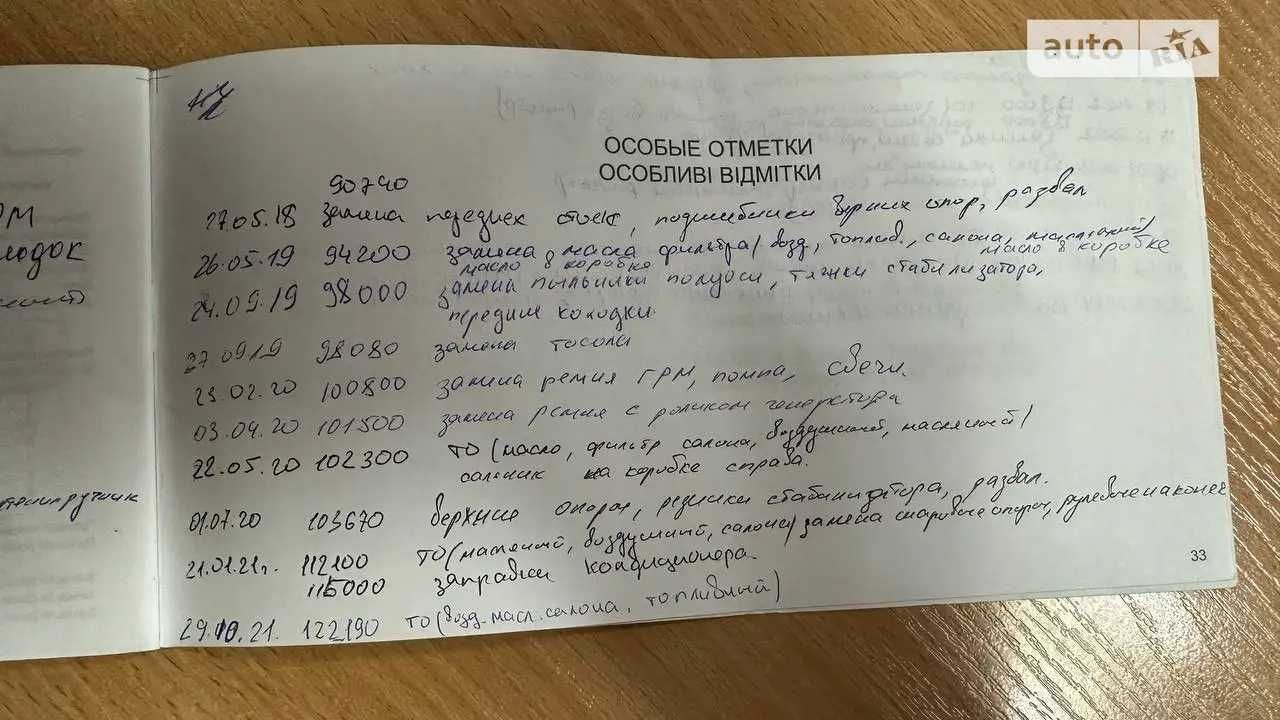 auto RIA
ОСОБЫЕ ОТМЕТКИ
ОСОБЛИВІ ВІДМІТКИ
90740
27.05.18 замена передних стоек, подшибники верхних опор, развал
26.05.19 94200 замена масла фильтра/возд, топлив., салона, масляный/
масло в коробке масло в коробке
24.09.19 98000 замена пыльника полуоси, тяжки стабилизатора,
передние колодки
27.09.19 98080 замена тосола
23.02.20 100800 замена ремня ГРМ, помпа, свечи.
03.04.20 101500 замена ремня с роликом генератора
22.05.20 102300 ТО (масло, фильтр салона, воздушный, масляный)
сальник на коробке справа.
01.07.20 103670 верхние опоры, резинки стабилизатора, развал.
21.01.21г. 112100 ТО (масляный, воздушный, салона/замена шаровые опоры, рулевые наконеч
115000 заправка кондиционера.
29.10.21. 122190 ТО (возд. масл. салона, топливный)
33
РМ
лодок